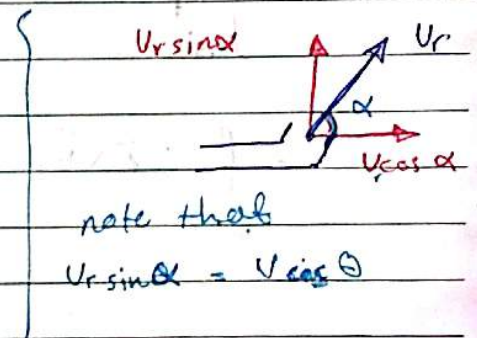 Ur sinα
Ur
α
Ur cos α
note that
Ur sinα = V cos θ